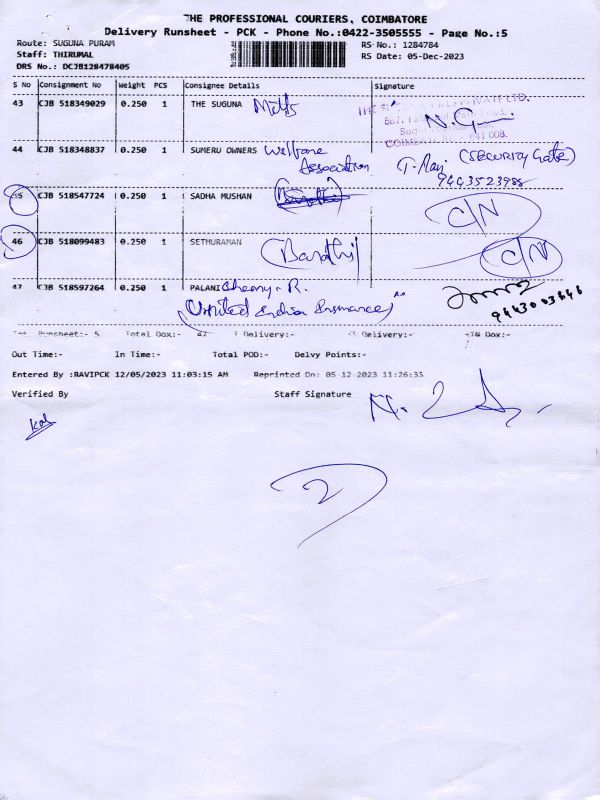 THE PROFESSIONAL COURIERS, COIMBATORE
Delivery Runsheet - PCK - Phone No.:0422-3505555 - Page No.:5
Route: SUGUNA PURAM RS No.: 1284784
Staff: THIRUMAL RS Date: 05-Dec-2023
DRS No.: DCJB128478405
S No Consignment No Weight PCS Consignee Details Signature
43 CJB 518349029 0.250 1 THE SUGUNA Mills
44 CJB 518348837 0.250 1 SUMERU OWNERS Welfare
Association (SECURITY GATE)
9443523988
45 CJB 518547724 0.250 1 SADHA MUSHAN C/N
46 CJB 518099483 0.250 1 SETHURAMAN C/N
47 CJB 518597264 0.250 1 PALANI R.
(United Indian Insurance)
9443003646
Runsheet:- 5 Total Dox:- 47 Delivery:- Delivery:- Dox:-
Out Time:- In Time:- Total POD:- Delvy Points:-
Entered By :RAVIPCK 12/05/2023 11:03:15 AM Reprinted On: 05-12-2023 11:26:33
Verified By Staff Signature
2